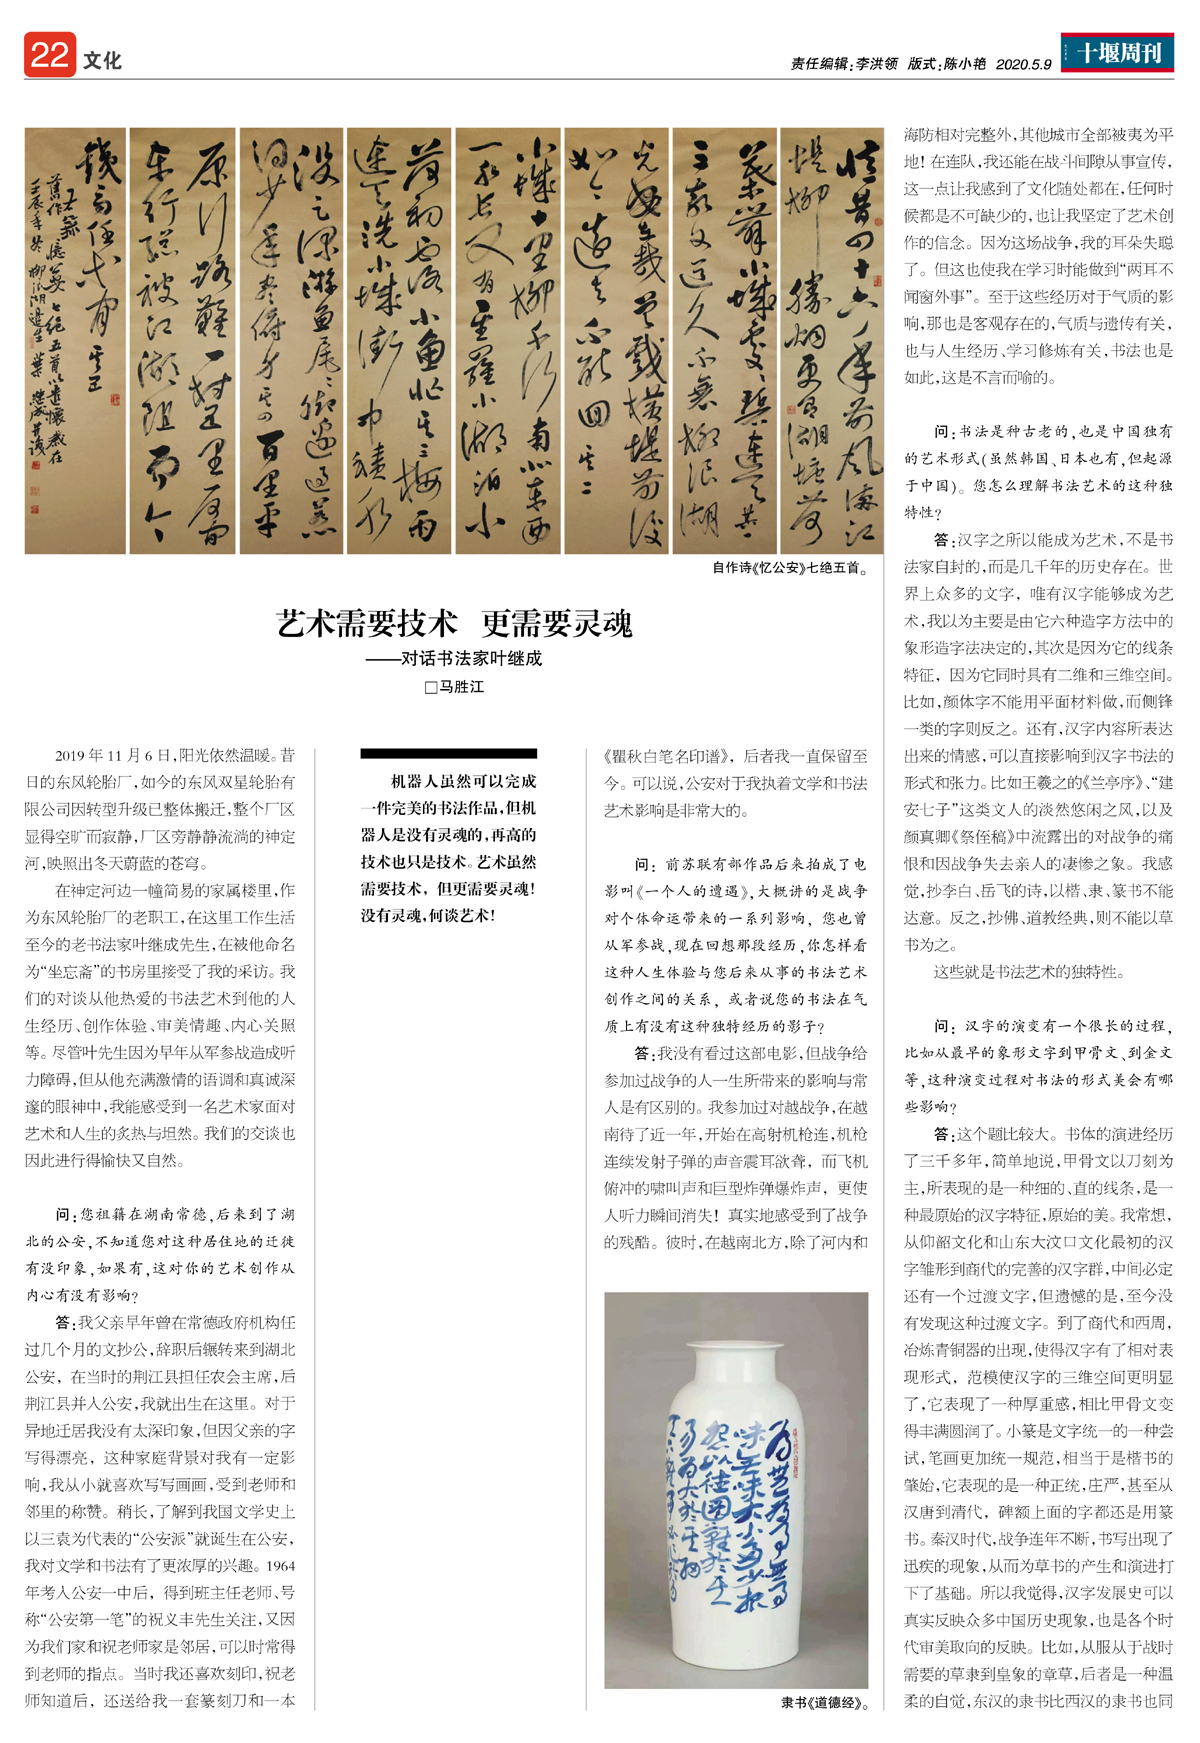 22 文化
责任编辑:李洪领 版式:陈小艳 2020.5.9
十堰周刊
自作诗《忆公安》七绝五首。
艺术需要技术 更需要灵魂
——对话书法家叶继成
□马胜江
2019 年 11 月 6 日,阳光依然温暖。昔
日的东风轮胎厂,如今的东风双星轮胎有
限公司因转型升级已整体搬迁,整个厂区
显得空旷而寂静,厂区旁静静流淌的神定
河,映照出冬天蔚蓝的苍穹。
在神定河边一幢简易的家属楼里,作
为东风轮胎厂的老职工,在这里工作生活
至今的老书法家叶继成先生,在被他命名
为“坐忘斋”的书房里接受了我的采访。我
们的对谈从他热爱的书法艺术到他的人
生经历、创作体验、审美情趣、内心关照
等。尽管叶先生因为早年从军参战造成听
力障碍,但从他充满激情的语调和真诚深
邃的眼神中,我能感受到一名艺术家面对
艺术和人生的炙热与坦然。我们的交谈也
因此进行得愉快又自然。
问:您祖籍在湖南常德,后来到了湖
北的公安,不知道您对这种居住地的迁徙
有没印象,如果有,这对你的艺术创作从
内心有没有影响?
答:我父亲早年曾在常德政府机构任
过几个月的文抄公,辞职后辗转来到湖北
公安,在当时的荆江县担任农会主席,后
荆江县并入公安,我就出生在这里。对于
异地迁居我没有太深印象,但因父亲的字
写得漂亮,这种家庭背景对我有一定影
响,我从小就喜欢写写画画,受到老师和
邻里的称赞。稍长,了解到我国文学史上
以三袁为代表的“公安派”就诞生在公安,
我对文学和书法有了更浓厚的兴趣。1964
年考入公安一中后,得到班主任老师、号
称“公安第一笔”的祝义丰先生关注,又因
为我们家和祝老师家是邻居,可以时常得
到老师的指点。当时我还喜欢刻印,祝老
师知道后,还送给我一套篆刻刀和一本
机器人虽然可以完成
一件完美的书法作品,但机
器人是没有灵魂的,再高的
技术也只是技术。艺术虽然
需要技术,但更需要灵魂!
没有灵魂,何谈艺术!
《瞿秋白笔名印谱》,后者我一直保留至
今。可以说,公安对于我执着文学和书法
艺术影响是非常大的。
问:前苏联有部作品后来拍成了电
影叫《一个人的遭遇》,大概讲的是战争
对个体命运带来的一系列影响,您也曾
从军参战,现在回想那段经历,你怎样看
这种人生体验与您后来从事的书法艺术
创作之间的关系,或者说您的书法在气
质上有没有这种独特经历的影子?
答:我没有看过这部电影,但战争给
参加过战争的人一生所带来的影响与常
人是有区别的。我参加过对越战争,在越
南待了近一年,开始在高射机枪连,机枪
连续发射子弹的声音震耳欲聋,而飞机
俯冲的啸叫声和巨型炸弹爆炸声,更使
人听力瞬间消失!真实地感受到了战争
的残酷。彼时,在越南北方,除了河内和
隶书《道德经》。
海防相对完整外,其他城市全部被夷为平
地!在连队,我还能在战斗间隙从事宣传,
这一点让我感到了文化随处都在,任何时
候都是不可缺少的,也让我坚定了艺术创
作的信念。因为这场战争,我的耳朵失聪
了。但这也使我在学习时能做到“两耳不
闻窗外事”。至于这些经历对于气质的影
响,那也是客观存在的,气质与遗传有关,
也与人生经历、学习修炼有关,书法也是
如此,这是不言而喻的。
问:书法是种古老的,也是中国独有
的艺术形式(虽然韩国、日本也有,但起源
于中国)。您怎么理解书法艺术的这种独
特性?
答:汉字之所以能成为艺术,不是书
法家自封的,而是几千年的历史存在。世
界上众多的文字,唯有汉字能够成为艺
术,我以为主要是由它六种造字方法中的
象形造字法决定的,其次是因为它的线条
特征,因为它同时具有二维和三维空间。
比如,颜体字不能用平面材料做,而侧锋
一类的字则反之。还有,汉字内容所表达
出来的情感,可以直接影响到汉字书法的
形式和张力。比如王羲之的《兰亭序》、“建
安七子”这类文人的淡然悠闲之风,以及
颜真卿《祭侄稿》中流露出的对战争的痛
恨和因战争失去亲人的凄惨之象。我感
觉,抄李白、岳飞的诗,以楷、隶、篆书不能
达意。反之,抄佛、道教经典,则不能以草
书为之。
这些就是书法艺术的独特性。
问:汉字的演变有一个很长的过程,
比如从最早的象形文字到甲骨文、到金文
等,这种演变过程对书法的形式美会有哪
些影响?
答:这个题比较大。书体的演进经历
了三千多年,简单地说,甲骨文以刀刻为
主,所表现的是一种细的、直的线条,是一
种最原始的汉字特征,原始的美。我常想,
从仰韶文化和山东大汶口文化最初的汉
字雏形到商代的完善的汉字群,中间必定
还有一个过渡文字,但遗憾的是,至今没
有发现这种过渡文字。到了商代和西周,
冶炼青铜器的出现,使得汉字有了相对表
现形式,范模使汉字的三维空间更明显
了,它表现了一种厚重感,相比甲骨文变
得丰满圆润了。小篆是文字统一的一种尝
试,笔画更加统一规范,相当于是楷书的
肇始,它表现的是一种正统,庄严,甚至从
汉唐到清代,碑额上面的字都还是用篆
书。秦汉时代,战争连年不断,书写出现了
迅疾的现象,从而为草书的产生和演进打
下了基础。所以我觉得,汉字发展史可以
真实反映众多中国历史现象,也是各个时
代审美取向的反映。比如,从服从于战时
需要的草隶到皇象的章草,后者是一种温
柔的自觉,东汉的隶书比西汉的隶书也同